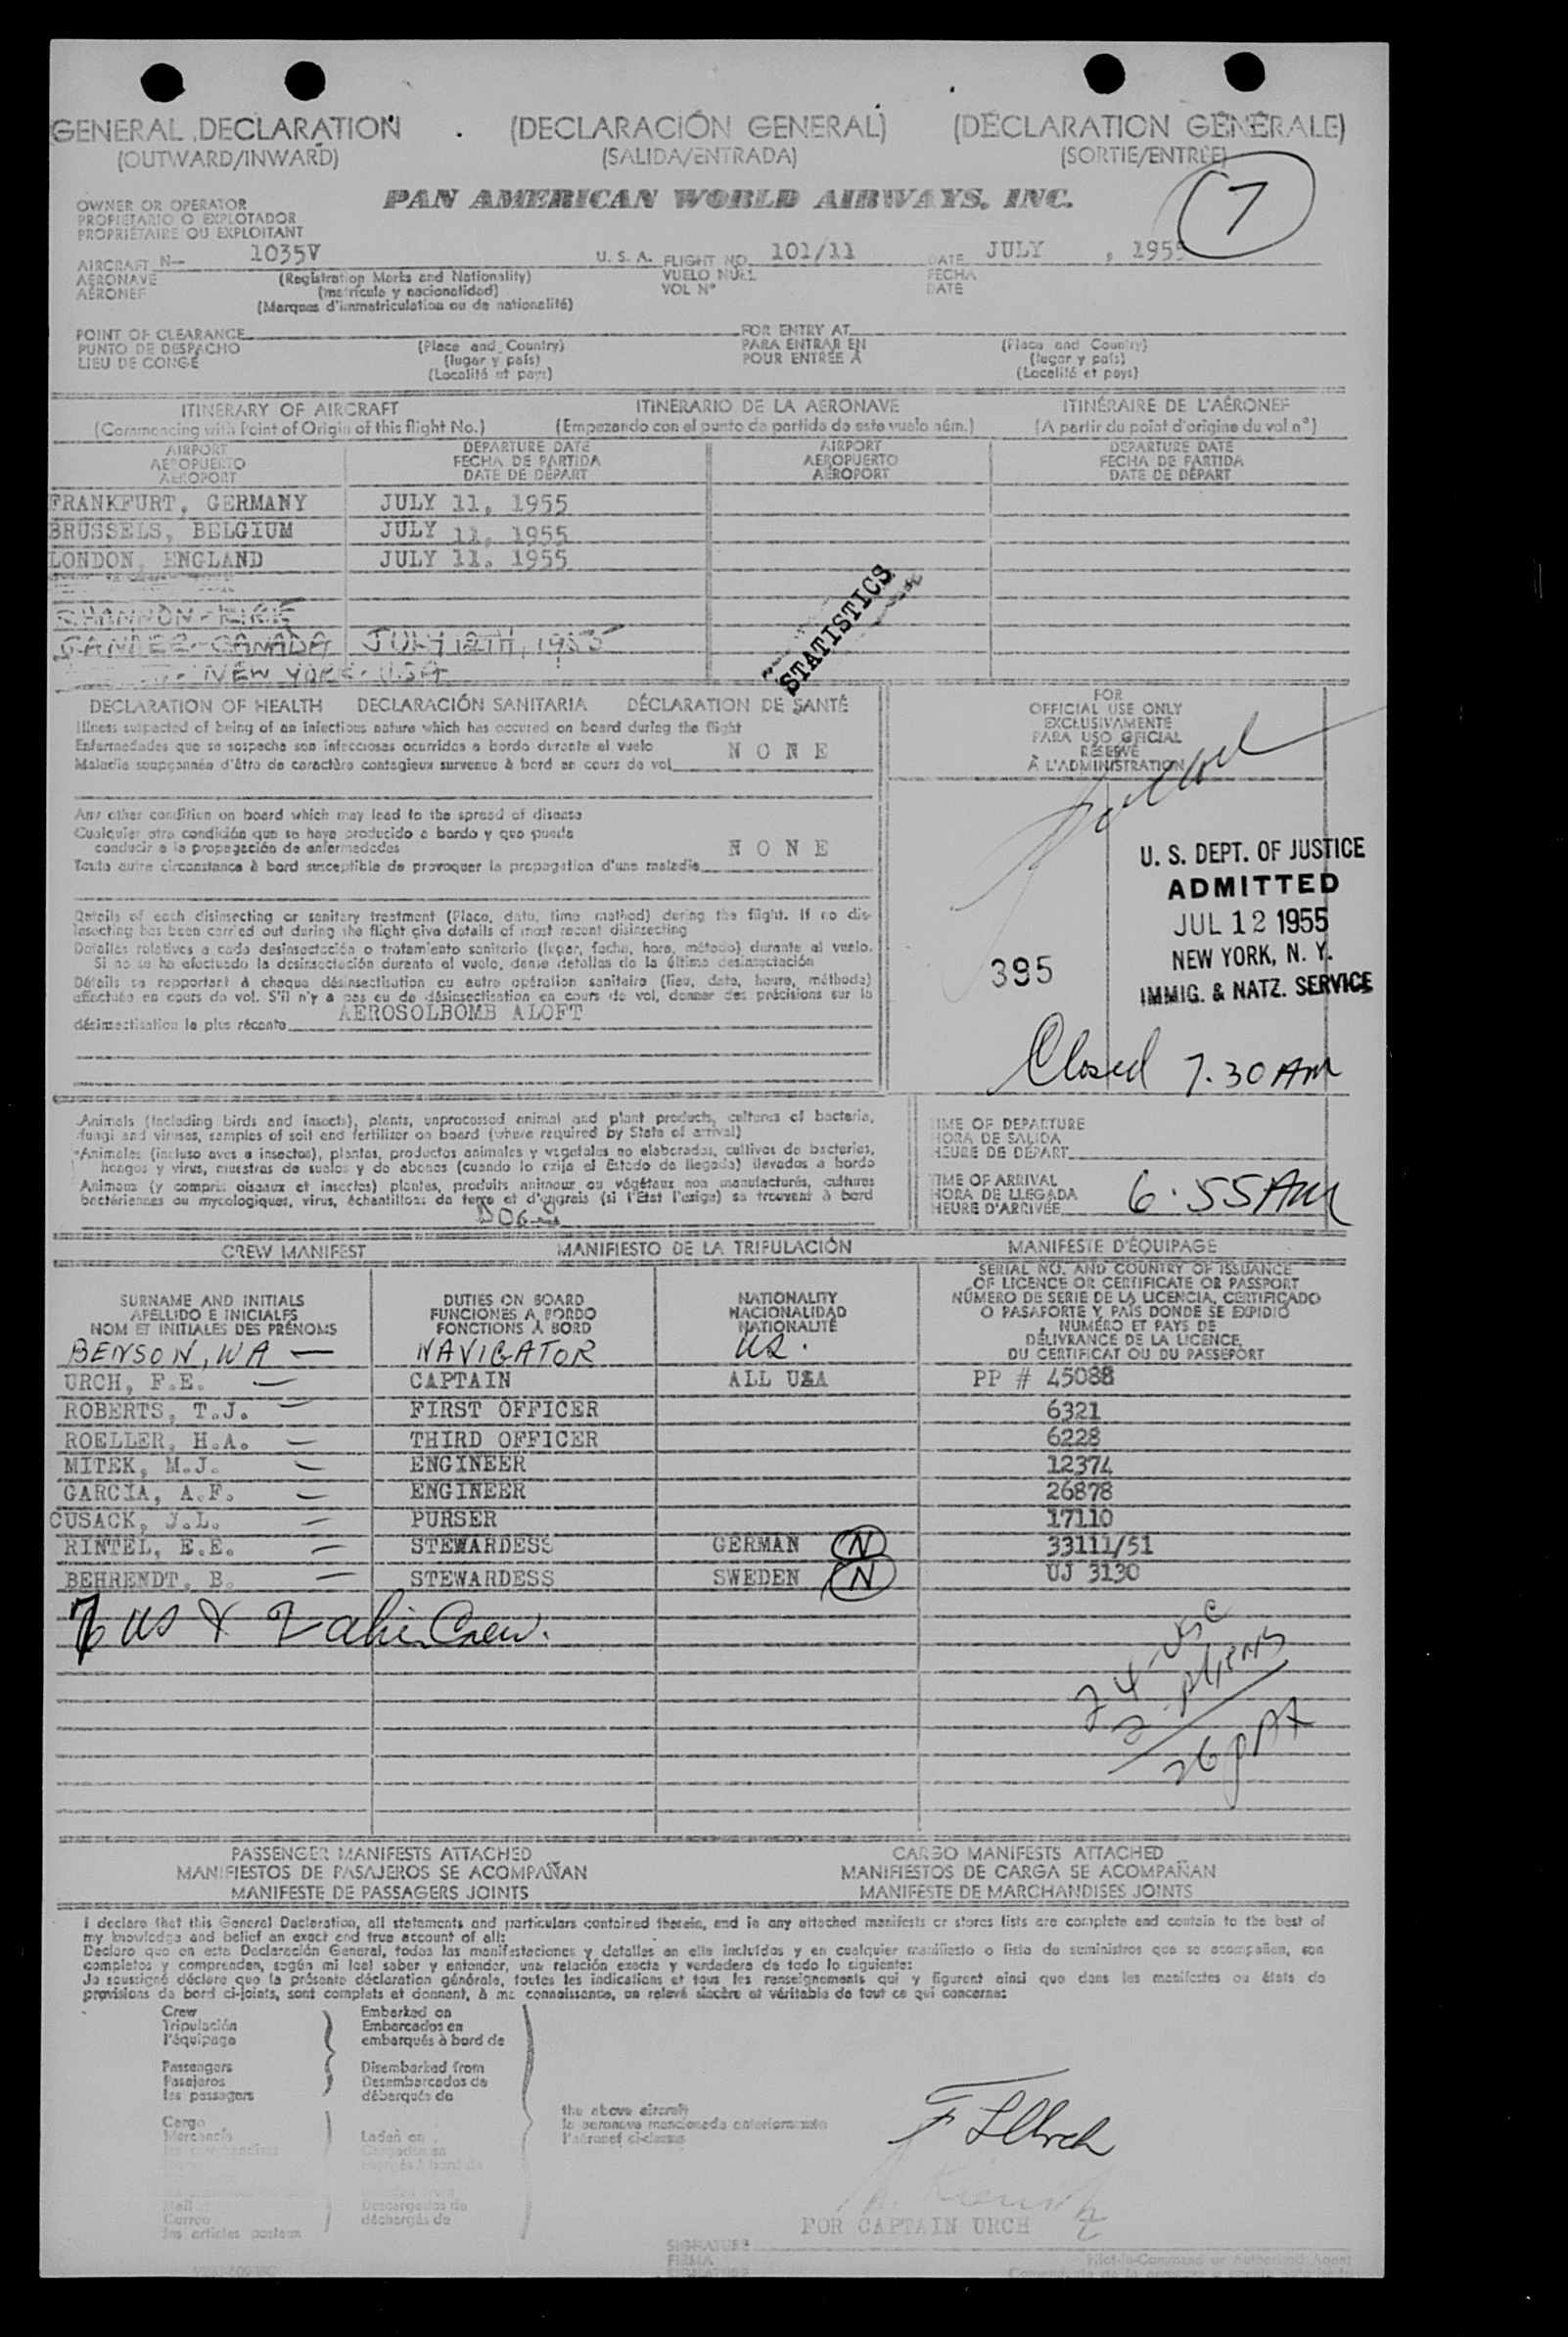 GENERAL DECLARATION (DECLARACIÓN GENERAL) (DÉCLARATION GÉNÉRALE)
(OUTWARD/INWARD) (SALIDA/ENTRADA) (SORTIE/ENTRÉE)
7
OWNER OR OPERATOR PAN AMERICAN WORLD AIRWAYS, INC.
PROPIETARIO O EXPLOTADOR
PROPRIÉTAIRE OU EXPLOITANT
AIRCRAFT N— 1035V U. S. A. FLIGHT NO. 101/11 DATE JULY , 1955
AERONAVE (Registration Marks and Nationality) VUELO NÚM. FECHA
AÉRONEF (matrícula y nacionalidad) VOL Nº DATE
(Marques d'immatriculation ou de nationalité)
POINT OF CLEARANCE FOR ENTRY AT
PUNTO DE DESPACHO (Place and Country) PARA ENTRAR EN (Place and Country)
LIEU DE CONGÉ (lugar y país) POUR ENTRÉE À (lugar y país)
(Localité et pays) (Localité et pays)
ITINERARY OF AIRCRAFT ITINERARIO DE LA AERONAVE ITINÉRAIRE DE L'AÉRONEF
(Commencing with Point of Origin of this flight No.) (Empezando con el punto de partida de este vuelo núm.) (A partir du point d'origine du vol nº)
AIRPORT DEPARTURE DATE AIRPORT DEPARTURE DATE
AEROPUERTO FECHA DE PARTIDA AEROPUERTO FECHA DE PARTIDA
AÉROPORT DATE DE DÉPART AÉROPORT DATE DE DÉPART
FRANKFURT, GERMANY JULY 11, 1955
BRUSSELS, BELGIUM JULY 11, 1955
LONDON, ENGLAND JULY 11. 1955
SHANNON - EIRE
GANDER - CANADA JULY 12TH, 1955
NEW YORK - USA
STATISTICS
DECLARATION OF HEALTH DECLARACIÓN SANITARIA DÉCLARATION DE SANTÉ
Illness suspected of being of an infectious nature which has occured on board during the flight
Enfermedades que se sospecha son infecciosas ocurridas a bordo durante el vuelo
Maladie soupçonnée d'être de caractère contagieux survenue à bord en cours de vol NONE
Any other condition on board which may lead to the spread of disease
Cualquier otra condición que se haya producido a bordo y que pueda
conducir a la propagación de enfermedades
Toute autre circonstance à bord susceptible de provoquer la propagation d'une maladie NONE
Details of each disinsecting or sanitary treatment (Place, date, time, method) during the flight. If no dis-
insecting has been carried out during the flight give details of most recent disinsecting
Detalles relativos a cada desinsectación o tratamiento sanitario (lugar, fecha, hora, método) durante el vuelo.
Si no se ha efectuado la desinsectación durante el vuelo, dense detalles de la última desinsectación
Détails se rapportant à chaque désinsectisation ou autre opération sanitaire (lieu, date, heure, méthode)
effectuée en cours de vol. S'il n'y a pas eu de désinsectisation en cours de vol, donner des précisions sur la
désinsectisation la plus récente AEROSOLBOMB ALOFT
FOR
OFFICIAL USE ONLY
EXCLUSIVAMENTE
PARA USO OFICIAL
RÉSERVÉ
À L'ADMINISTRATION
U. S. DEPT. OF JUSTICE
ADMITTED
JUL 12 1955
NEW YORK, N. Y.
IMMIG. & NATZ. SERVICE
395
Closed 7.30 AM
Animals (including birds and insects), plants, unprocessed animal and plant products, cultures of bacteria,
fungi and viruses, samples of soil and fertilizer on board (where required by State of arrival)
Animales (incluso aves e insectos), plantas, productos animales y vegetales no elaborados, cultivos de bacterias,
hongos y virus, muestras de suelos y de abonos (cuando lo exija el Estado de llegada) llevados a bordo
Animaux (y compris oiseaux et insectes) plantes, produits animaux ou végétaux non manufacturés, cultures
bactériennes ou mycologiques, virus, échantillons de terre et d'engrais (si l'État l'exige) se trouvant à bord
TIME OF DEPARTURE
HORA DE SALIDA
HEURE DE DÉPART
TIME OF ARRIVAL
HORA DE LLEGADA
HEURE D'ARRIVÉE 6.55 AM
CREW MANIFEST MANIFIESTO DE LA TRIPULACIÓN MANIFESTE D'ÉQUIPAGE
SURNAME AND INITIALS
APELLIDO E INICIALES
NOM ET INITIALES DES PRÉNOMS
DUTIES ON BOARD
FUNCIONES A BORDO
FONCTIONS À BORD
NATIONALITY
NACIONALIDAD
NATIONALITÉ
SERIAL NO. AND COUNTRY OF ISSUANCE
OF LICENCE OR CERTIFICATE OR PASSPORT
NÚMERO DE SERIE DE LA LICENCIA, CERTIFICADO
O PASAPORTE Y PAÍS DONDE SE EXPIDIÓ
NUMÉRO ET PAYS DE
DÉLIVRANCE DE LA LICENCE,
DU CERTIFICAT OU DU PASSEPORT
BENSON, WA — NAVIGATOR US.
URCH, F.E. — CAPTAIN ALL USA PP # 45088
ROBERTS, T.J. — FIRST OFFICER 6321
ROELLER, H.A. — THIRD OFFICER 6228
MITEK, M.J. — ENGINEER 12374
GARCIA, A.F. — ENGINEER 26878
CUSACK, J.L. — PURSER 17110
RINTEL, E.E. — STEWARDESS GERMAN N 33111/51
BEHRENDT, B. — STEWARDESS SWEDEN N UJ 3130
7 US & 2 alien Crew.
24 - USC
2 aliens
26 pax
PASSENGER MANIFESTS ATTACHED CARGO MANIFESTS ATTACHED
MANIFIESTOS DE PASAJEROS SE ACOMPAÑAN MANIFIESTOS DE CARGA SE ACOMPAÑAN
MANIFESTE DE PASSAGERS JOINTS MANIFESTE DE MARCHANDISES JOINTS
I declare that this General Declaration, all statements and particulars contained therein, and in any attached manifests or stores lists are complete and contain to the best of
my knowledge and belief an exact and true account of all:
Declaro que en esta Declaración General, todas las manifestaciones y detalles en ella incluídos y en cualquier manifiesto o lista de suministros que se acompañen, son
completos y comprenden, según mi leal saber y entender, una relación exacta y verdadera de todo lo siguiente:
Je soussigné déclare que la présente déclaration générale, toutes les indications et tous les renseignements qui y figurent ainsi que dans les manifestes ou états de
provisions de bord ci-joints, sont complets et donnent, à ma connaissance, un relevé sincère et véritable de tout ce qui concerne:
Crew Embarked on
Tripulación Embarcados en
l'équipage embarqués à bord de
Passengers Disembarked from
Pasajeros Desembarcados de
les passagers débarqués de
the above aircraft
la aeronave mencionada anteriormente
l'aéronef ci-dessus
Cargo
Mercancía Laden on
Cargados en
Mail Descargados de
Correo déchargés de
les articles postaux
F E Urch
FOR CAPTAIN URCH
SIGNATURE
FIRMA Pilot-in-Command or Authorized Agent